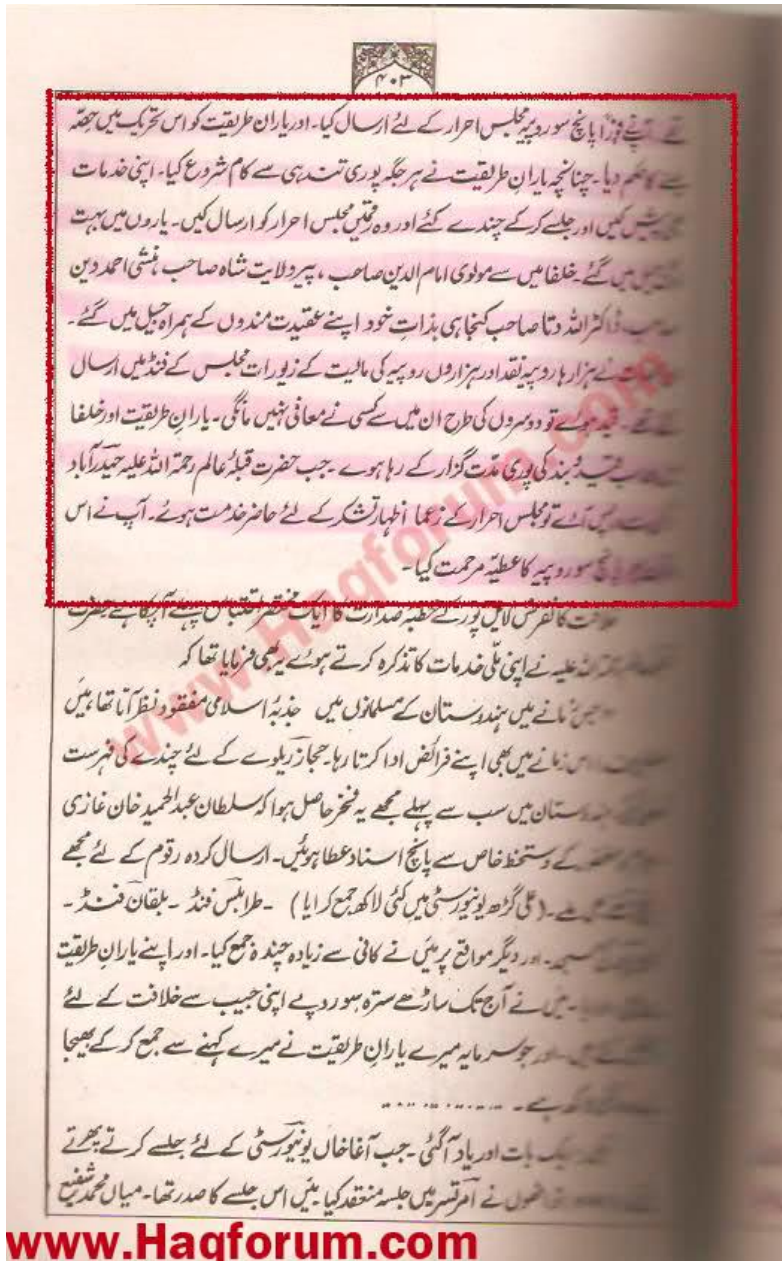 ۴۰۳
تھے۔ آپ نے فوراً پانچ سو روپیہ مجلس احرار کے لئے ارسال کیا۔ اور یاران طریقیت کو اس تحریک میں حصّہ
کا حکم دیا۔ چنانچہ یارانِ طریقیت نے ہر جگہ پوری تندہی سے کام شروع کیا۔ اپنی خدمات
پیش کیں اور جلسے کر کے چندے کئے اور وہ رقمیں مجلس احرار کو ارسال کیں۔ یاروں میں بہت
جیل میں گئے۔ خلفا میں سے مولوی امام الدین صاحب، پیر ولایت شاہ صاحب، منشی احمد دین
صاحب، ڈاکٹر اللہ دتا صاحب کنجاہی بذاتِ خود اپنے عقیدت مندوں کے ہمراہ جیل میں گئے۔
نے ہزارہا روپیہ نقد اور ہزاروں روپیہ کی مالیت کے زیورات مجلس کے فنڈ میں ارسال
قید ہوئے تو دوسروں کی طرح ان میں سے کسی نے معافی نہیں مانگی۔ یارانِ طریقیت اور خلفا
قید و بند کی پوری مدّت گزار کے رہا ہوے۔ جب حضرت قبلۂ عالم رحمۃ اللہ علیہ حیدرآباد
واپس آئے تو مجلس احرار کے زعما اظہار تشکر کے لئے حاضر خدمت ہوئے۔ آپ نے اس
پانچ سو روپیہ کا عطیّہ مرحمت کیا۔
خلافت کانفرنس لائل پور کے خطبہ صدارت کا ایک مختصر اقتباس پہلے آ چکا ہے حضرت
رحمۃ اللہ علیہ نے اپنی ملّی خدمات کا تذکرہ کرتے ہوے یہ بھی فرمایا تھا کہ
جس زمانے میں ہندوستان کے مسلمانوں میں جذبۂ اسلامی مفقود نظر آتا تھا، میں
اس زمانے میں بھی اپنے فرائض ادا کرتا رہا۔ حجاز ریلوے کے لئے چندے کی فہرست
ہندوستان میں سب سے پہلے مجھے یہ فخر حاصل ہوا کہ سلطان عبدالحمید خان غازی
کے دستخط خاص سے پانچ اسناد عطا ہوئیں۔ ارسال کردہ رقوم کے لئے مجھے
(علی گڑھ یونیورسٹی میں کئی لاکھ جمع کرایا) ۔ طرابلس فنڈ ۔ بلقان فنڈ ۔
اور دیگر مواقع پر میں نے کافی سے زیادہ چندہ جمع کیا۔ اور اپنے یارانِ طریقیت
میں نے آج تک ساڑھے سترہ سو روپے اپنی جیب سے خلافت کے لئے
اور جو سرمایہ میرے یارانِ طریقیت نے میرے کہنے سے جمع کر کے بھیجا
ہے۔ ............
ایک بات اور یاد آ گئی۔ جب آغا خاں یونیورسٹی کے لئے جلسے کرتے پھرتے
انھوں نے امرتسر میں جلسہ منعقد کیا میں اس جلسے کا صدر تھا۔ میاں محمد شفیع
www.Haqforum.com
www.Haqforum.com